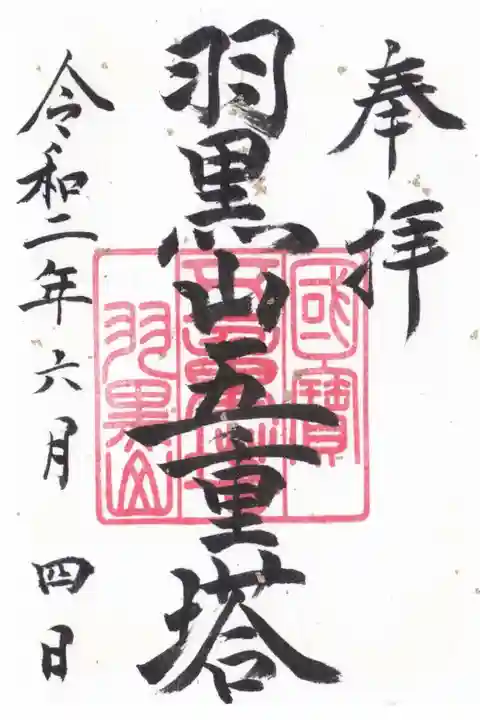 奉拝
羽黒山五重塔
令和二年六月四日
國寶
五重塔
羽黒山